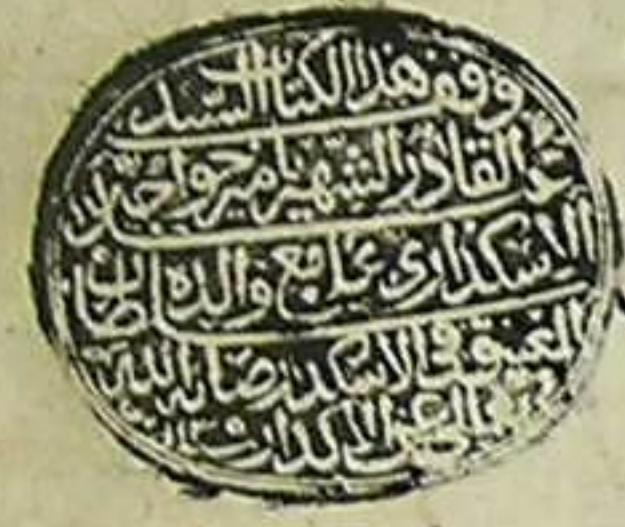 وقف هذا الكتاب السيد
عبد القادر الشهير بامير خواجه
الاسكداري بجامع والده سلطان
العتيق في الاسكدار صانه الله
الاكدار